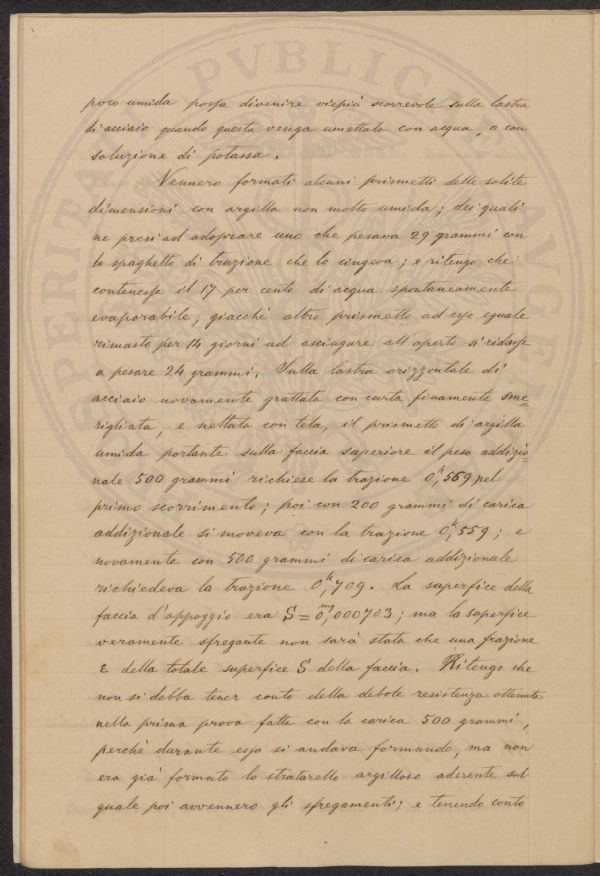 poco umida possa divenire viepiù scorrevole sulla lastra
di acciaio quando questa venga umettata con acqua, o con
soluzione di potassa.
Vennero formati alcuni prismetti delle solite
dimensioni con argilla non molto umida; dei quali
ne presi ad adoprare uno che pesava 29 grammi con
lo spaghetto di trazione che lo cingeva; e ritengo che
contenesse il 17 per cento di acqua spontaneamente
evaporabile, giacchè altro prismetto ad esso eguale
rimasto per 14 giorni ad asciugare all'aperto si ridusse
a pesare 24 grammi. Sulla lastra orizzontale di
acciaio novamente grattata con carta finamente sme=
rigliata, e nettata con tela, il prismetto di argilla
umida portante sulla faccia superiore il peso addizio=
nale 500 grammi richiese la trazione 0,k569 pel
primo scorrimento; poi con 200 grammi di carica
addizionale si moveva con la trazione 0,k559; e
novamente con 500 grammi di carica addizionale
richiedeva la trazione 0,k709. La superfice della
faccia d'appoggio era S = 0,mq000703; ma la superfice
veramente sfregante non sarà stata che una frazione
ε della totale superfice S della faccia. Ritengo che
non si debba tener conto della debole resistenza ottenuta
nella prima prova fatta con la carica 500 grammi,
perchè durante essa si andava formando, ma non
era già formato lo straterello argilloso aderente sul
quale poi avvennero gli sfregamenti; e tenendo conto
PVBLICAE